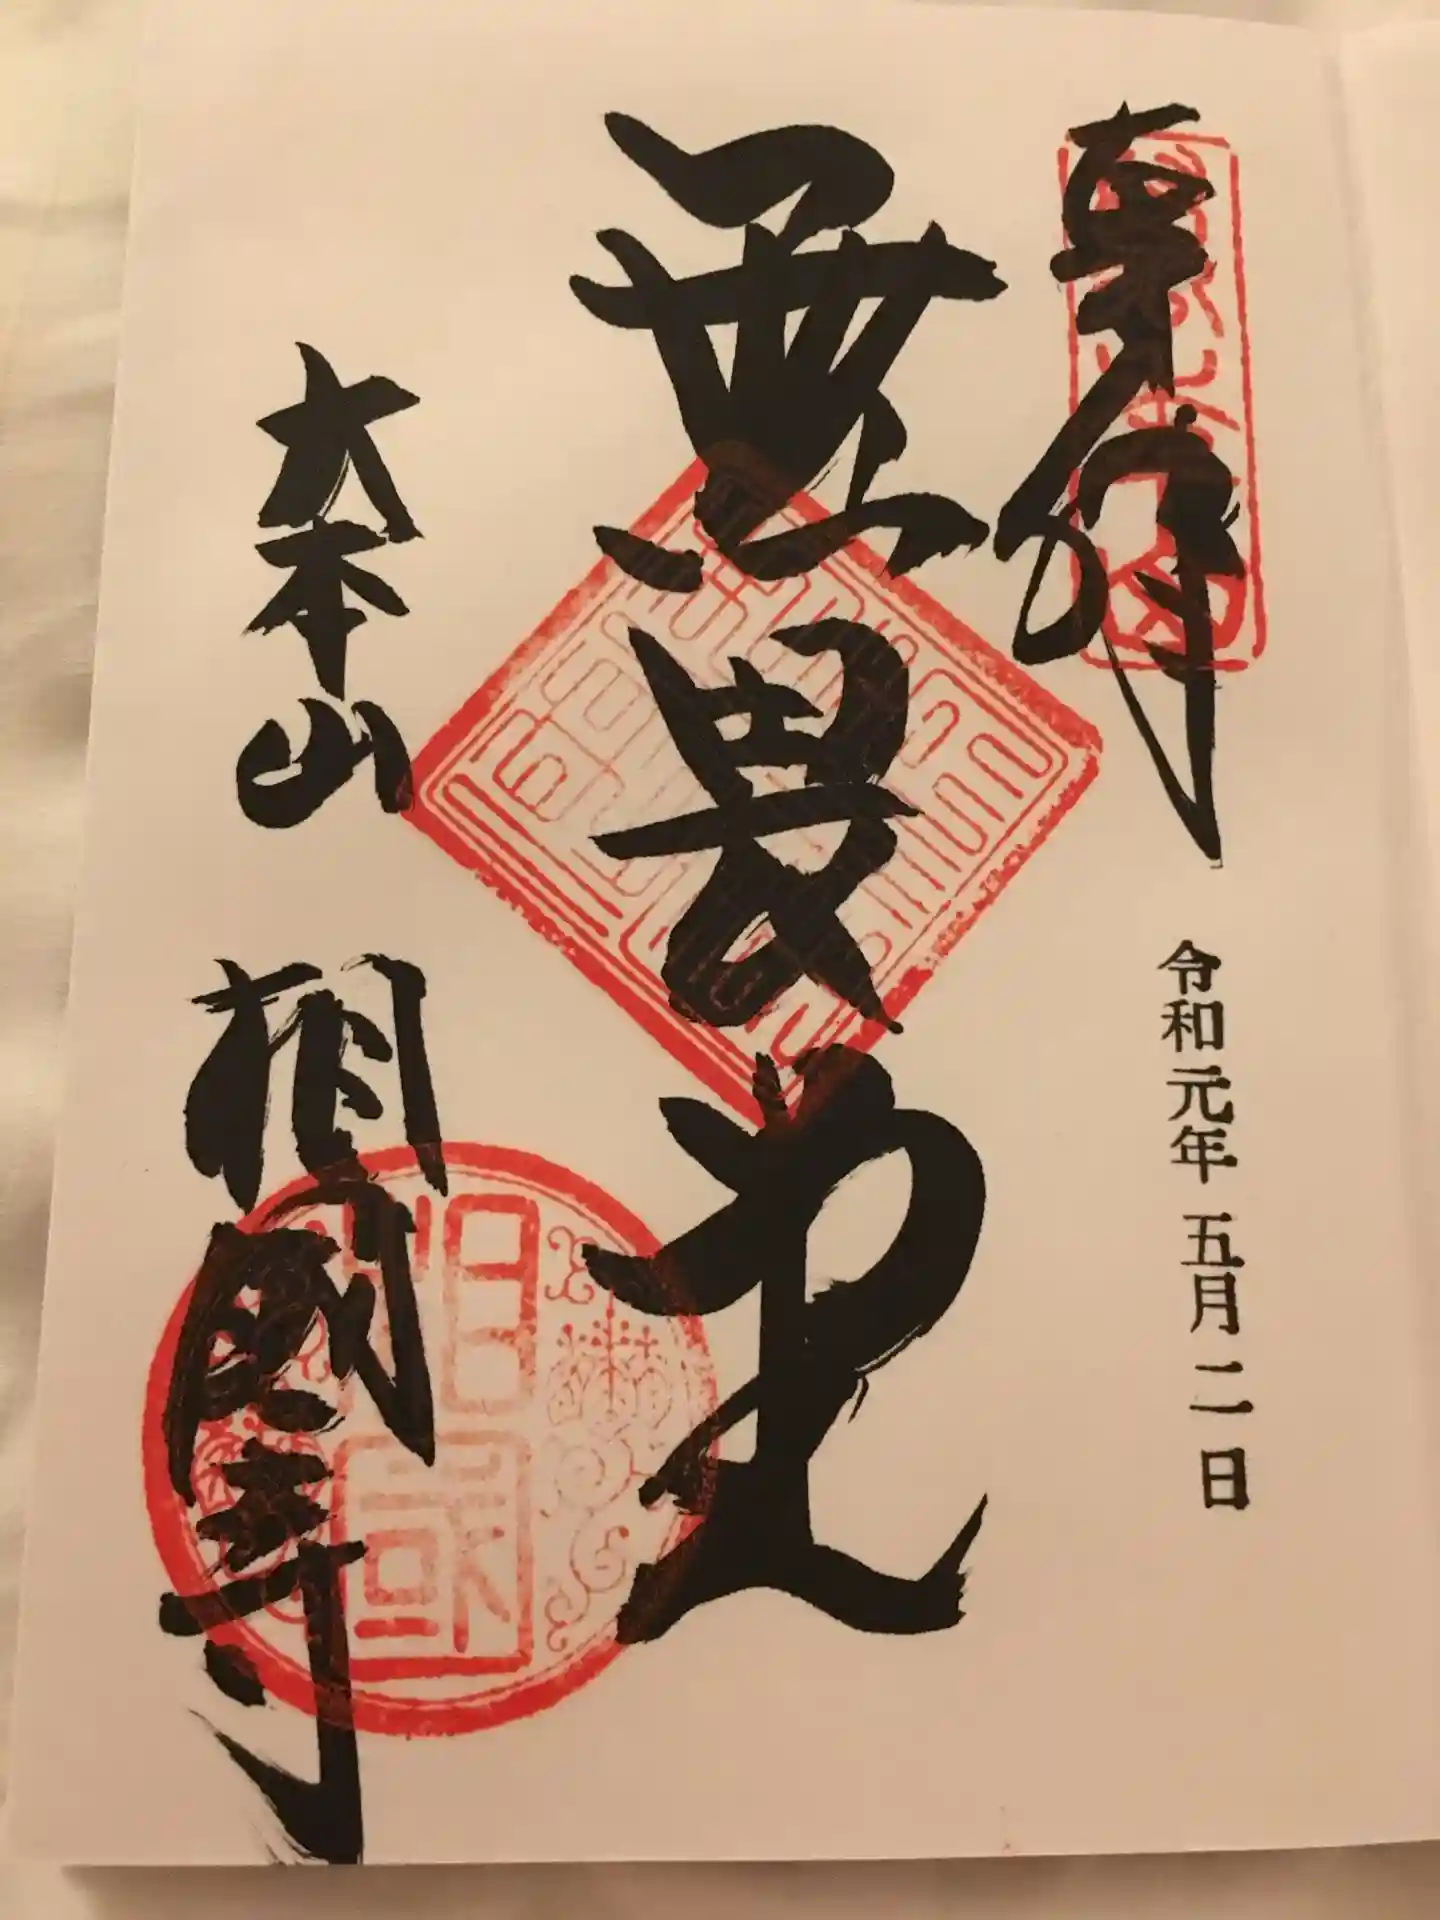 奉拝
令和元年 五月 二日
無畏堂
大本山 相國寺
相國